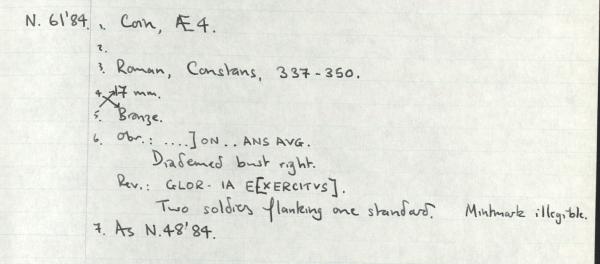 N. 61'84. 1. Coin, Æ 4.
2.
3. Roman, Constans, 337-350.
4. 17 mm.
5. Bronze.
6. Obv.: ....] ON .. ANS AVG.
Diademed bust right.
Rev.: GLOR- IA E[XERCITVS].
Two soldiers flanking one standard. Mintmark illegible.
7. As N.48'84.